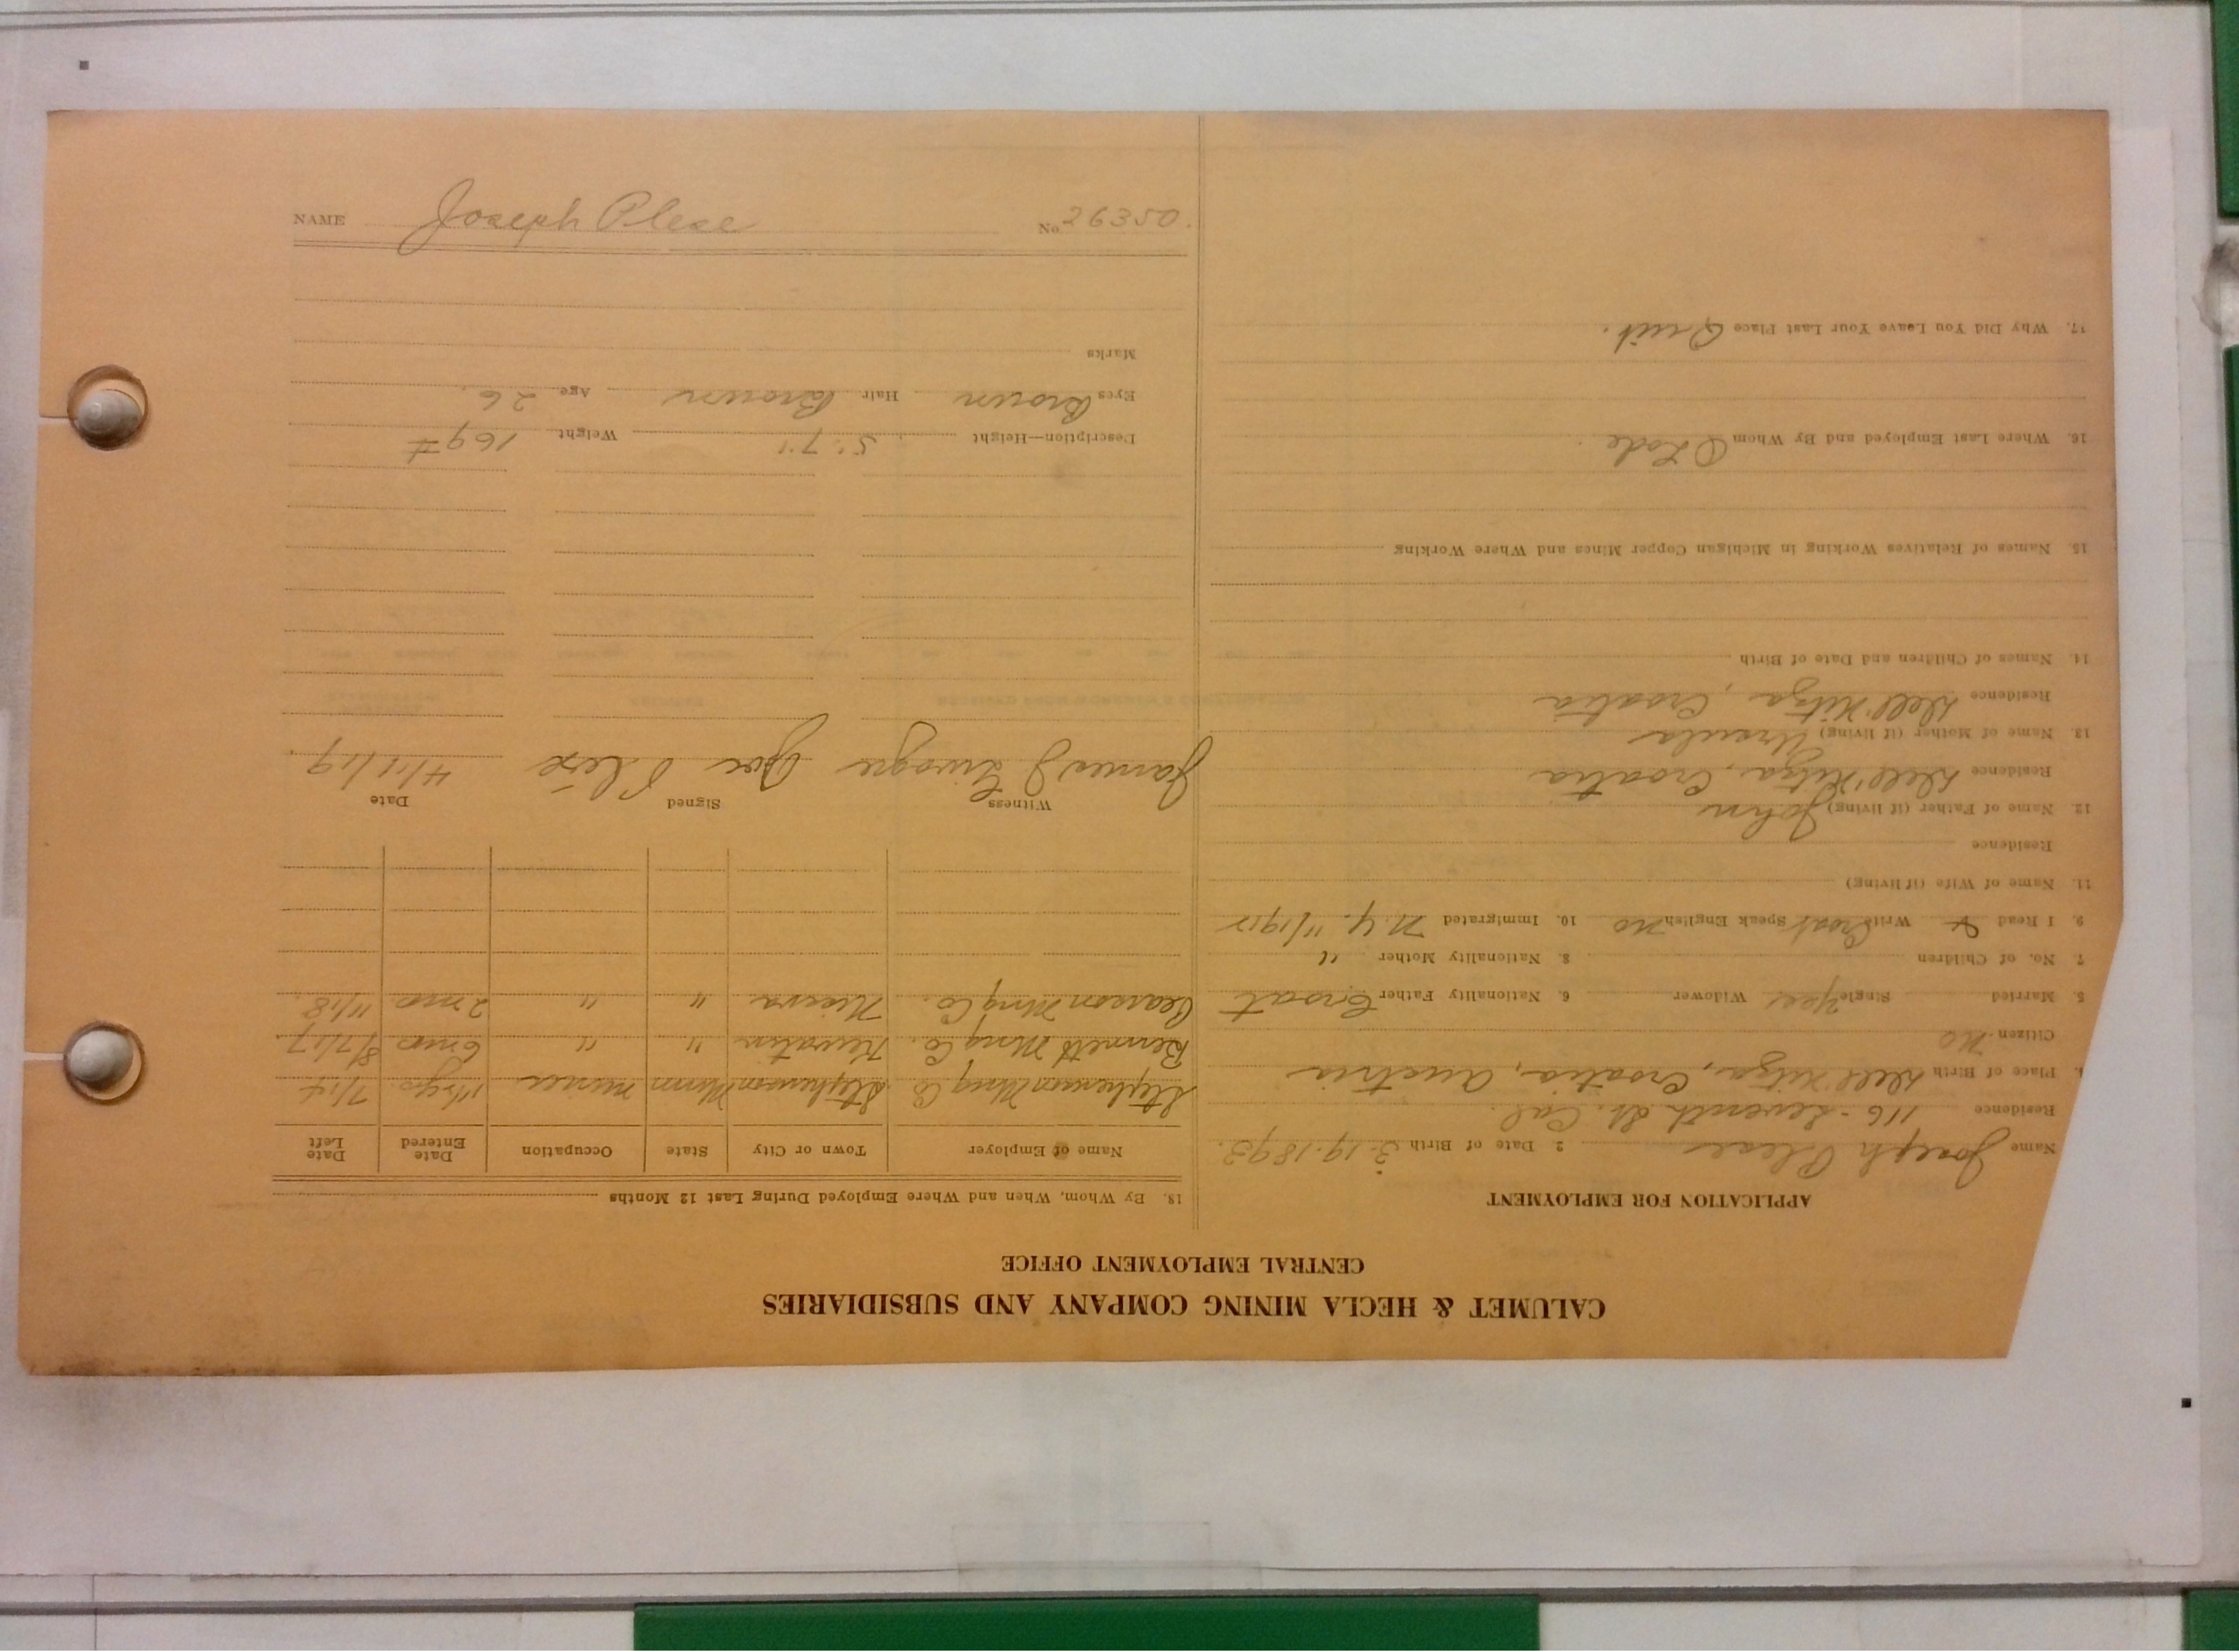 CALUMET & HECLA MINING COMPANY AND SUBSIDIARIES
CENTRAL EMPLOYMENT OFFICE
APPLICATION FOR EMPLOYMENT
Name Joseph Plese 2. Date of Birth 3.19.1893.
Residence 116 - Seventh St. Cal.
Place of Birth Croatia, Austria
Citizen No
5. Married Single Yes Widower 6. Nationality Father Croat
7. No. of Children 8. Nationality Mother "
9. I Read & Write Croat Speak English No 10. Immigrated N.Y. 11/1912
11. Name of Wife (if living)
Residence
12. Name of Father (if living) John
Residence Croatia
13. Name of Mother (if living) Ursula
Residence Croatia
14. Names of Children and Date of Birth
15. Names of Relatives Working in Michigan Copper Mines and Where Working
16. Where Last Employed and By Whom
17. Why Did You Leave Your Last Place Quit.
18. By Whom, When and Where Employed During Last 12 Months
Name of Employer Town or City State Occupation Date Entered Date Left
Stephenson Mng Co Stephenson Minn miner 1 1/2 yrs 7/14
Bennett Mng Co. Keewatin " " 6 mos 8/7/17
Mng Co. " " 2 mos 11/18.
Witness Signed Date
James J Joe Plese 4/11/19.
Description—Height 5'.7" Weight 169#
Eyes Brown Hair Brown Age 26.
Marks
NAME Joseph Plese No. 26350.